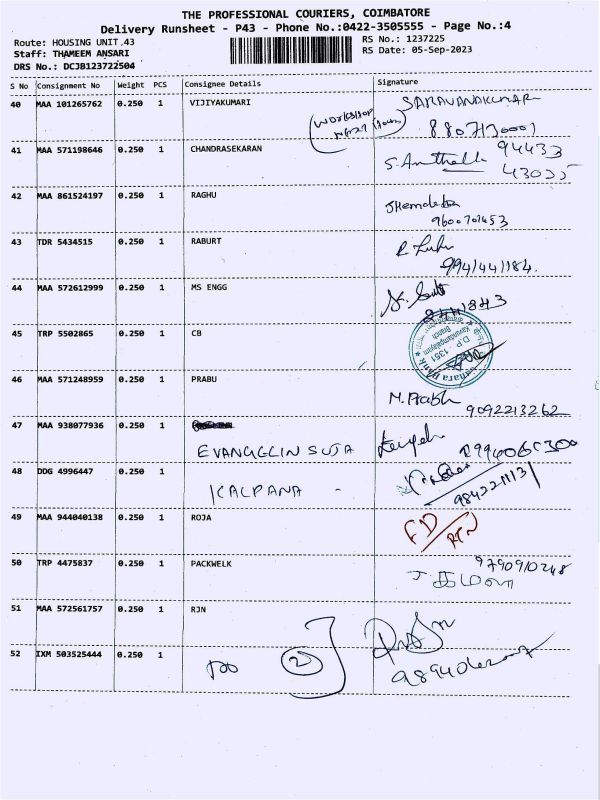 THE PROFESSIONAL COURIERS, COIMBATORE
Delivery Runsheet - P43 - Phone No.:0422-3505555 - Page No.:4
Route: HOUSING UNIT,43
RS No.: 1237225
Staff: THAMEEM ANSARI
RS Date: 05-Sep-2023
DRS No.: DCJB123722504
S No Consignment No Weight PCS Consignee Details Signature
40 MAA 101265762 0.250 1 VIJIYAKUMARI SARAVANAKUMAR
41 MAA 571198646 0.250 1 CHANDRASEKARAN 94433
42 MAA 861524197 0.250 1 RAGHU
43 TDR 5434515 0.250 1 RABURT
9941441184.
44 MAA 572612999 0.250 1 MS ENGG
45 TRP 5502865 0.250 1 CB
D.P. 1351
Branch
46 MAA 571248959 0.250 1 PRABU M. Prabh
9092213262
47 MAA 938077936 0.250 1
EVANGGLIN SUJA
48 DDG 4996447 0.250 1
KALPANA -
49 MAA 944040138 0.250 1 ROJA
50 TRP 4475837 0.250 1 PACKWELK 9790910248
51 MAA 572561757 0.250 1 RJN
52 IXM 503525444 0.250 1
2